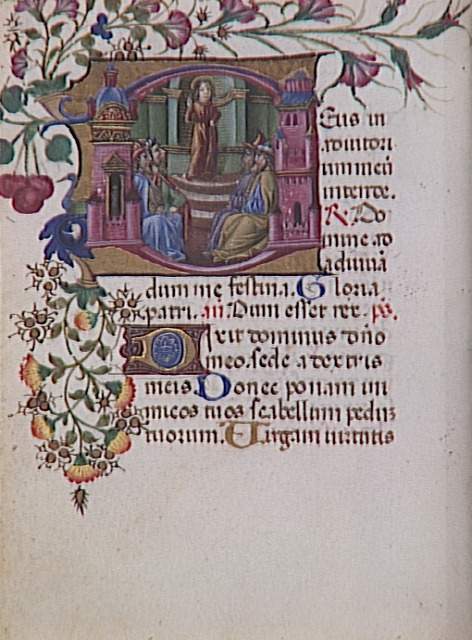 Deus in
adiutori
um meū
intende.
R. Do
mine ad
adiuuā
dum me festina. Gloria
patri. an Dum esset rex. ps.
Dixit dominus dño
meo. sede a dextris
meis. Donec ponam ini
micos tuos scabellum peduȝ
tuorum. Uirgam uirtutis